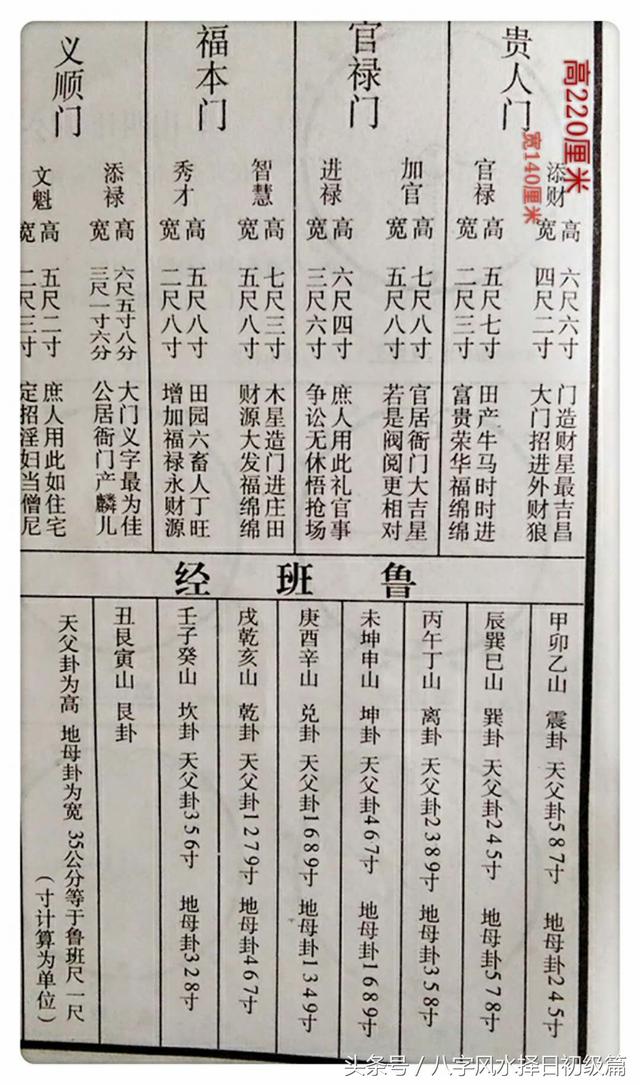 高220厘米
宽140厘米
贵人门
添财
高 六尺六寸 门造财星最吉昌
宽 四尺二寸 大门招进外财狼
官禄
高 五尺七寸 田产牛马时时进
宽 二尺三寸 富贵荣华福绵绵
官禄门
加官
高 七尺八寸 官居衙门大吉星
宽 五尺八寸 若是阀阅更相对
进禄
高 六尺四寸 庶人用此礼官事
宽 三尺六寸 争讼无休悟抢场
福本门
智慧
高 七尺三寸 木星造门进庄田
宽 五尺八寸 财源大发福绵绵
秀才
高 五尺八寸 田园六畜人丁旺
宽 二尺八寸 增加福禄永财源
义顺门
添禄
高 六尺五寸八分 大门义字最为佳
宽 三尺一寸六分 公居衙门产麟儿
文魁
高 五尺二寸 庶人用此如住宅
宽 二尺三寸 定招淫妇当僧尼
鲁班经
甲卯乙山 震卦 天父卦587寸 地母卦245寸
辰巽巳山 巽卦 天父卦245寸 地母卦578寸
丙午丁山 离卦 天父卦2389寸 地母卦358寸
未坤申山 坤卦 天父卦467寸 地母卦1689寸
庚酉辛山 兑卦 天父卦1689寸 地母卦1349寸
戌乾亥山 乾卦 天父卦1279寸 地母卦467寸
壬子癸山 坎卦 天父卦356寸 地母卦328寸
丑艮寅山 艮卦
天父卦为高 地母卦为宽 35公分等于鲁班尺一尺
（寸计算为单位）
头条号／八字风水择日初级篇